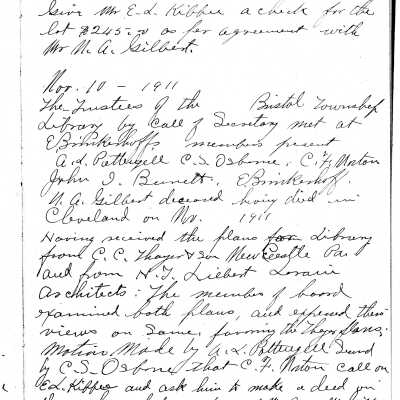 Give Mr E.L. Kibbee a check for the
lot $245.00 as per agreement with
Mr N. A. Gilbert.
Nov. 10 - 1911
The Trustees of the Bristol Township
Library by call of Secretary met at
E Brinkerhoffs members present
A. L. Pattengell C. S. Osborne, C. F. Norton
John I. Burnett, E Brinkerhoff.
N. A. Gilbert deceased having died in
Cleveland on Nov. 1911
Having received the plans for Library
from C. C. Thayer & Son New Castle Pa.
and from H. T. Liebert Lorain
Architects: The members of board
examined both plans, and expressed their
views on same, favoring the Thayer plans.
Motion Made by A. L. Pattengell Second
by C. S. Osborne that C. F. Norton call on
E L. Kibbee and ask him to make a deed in